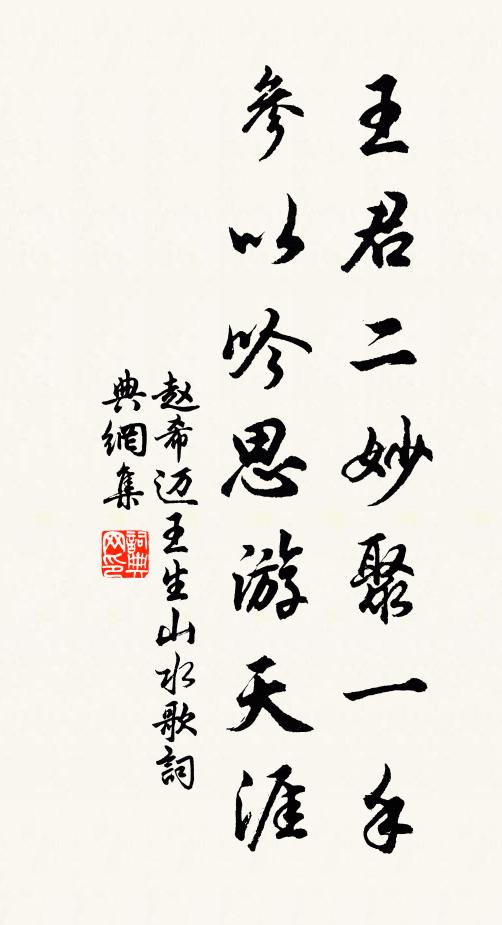 王君二妙聚一手
参以吟思游天涯
赵希迈王生山水歌詞
典網集
詞典网印